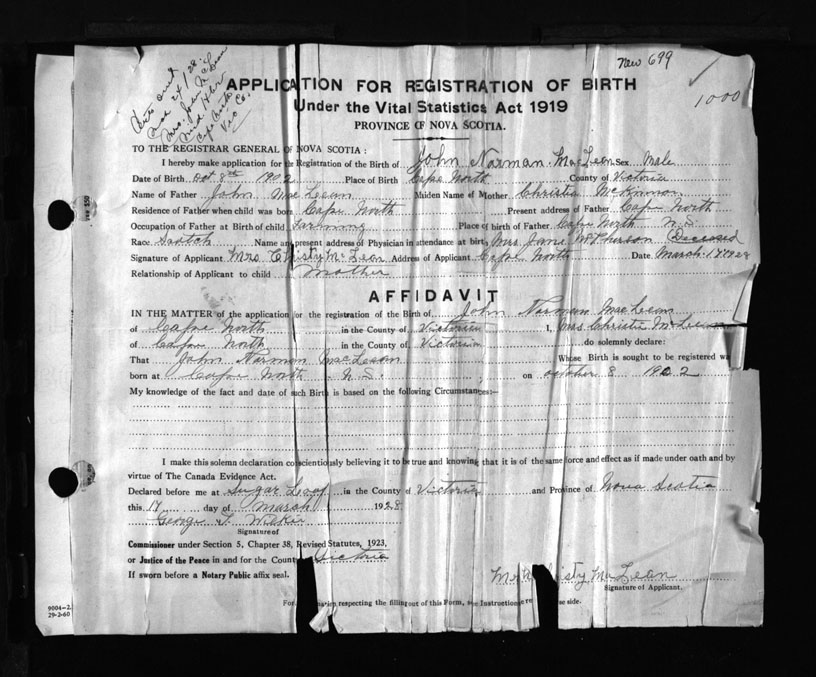 New 699
1000
Mrs. John McLean
Cape North
Vic Co.
APPLICATION FOR REGISTRATION OF BIRTH
Under the Vital Statistics Act 1919
PROVINCE OF NOVA SCOTIA.
TO THE REGISTRAR GENERAL OF NOVA SCOTIA :
I hereby make application for the Registration of the Birth of John Norman MacLean Sex Male
Date of Birth Oct 8th 1902 Place of Birth Cape North County of Victoria
Name of Father John MacLean Maiden Name of Mother Christia McKinnon
Residence of Father when child was born Cape North Present address of Father Cape North
Occupation of Father at Birth of child Farming Place of birth of Father Cape North N.S.
Race Scotch Name and present address of Physician in attendance at birth Mrs Jane McPherson Deceased
Signature of Applicant Mrs. Christy McLean Address of Applicant Cape North Date March 17 1928
Relationship of Applicant to child Mother
AFFIDAVIT
IN THE MATTER of the application for the registration of the Birth of John Norman MacLean
of Cape North in the County of Victoria I, Mrs Christie McLean
of Cape North in the County of Victoria do solemnly declare:
That John Norman MacLean Whose Birth is sought to be registered wa
born at Cape North N.S. on october 8 1902
My knowledge of the fact and date of such Birth is based on the following Circumstances:—
I make this solemn declaration conscientiously believing it to be true and knowing that it is of the same force and effect as if made under oath and by
virtue of The Canada Evidence Act.
Declared before me at Sugar Loaf in the County of Victoria and Province of Nova Scotia
this 17 day of March 1928
George T.
Signature of
Commissioner under Section 5, Chapter 38, Revised Statutes, 1923,
or Justice of the Peace in and for the County Victoria
If sworn before a Notary Public affix seal.
Mrs Christy McLean
Signature of Applicant.
For respecting the filling out of this Form, see Instructions re side.
9004—2
29-2-60